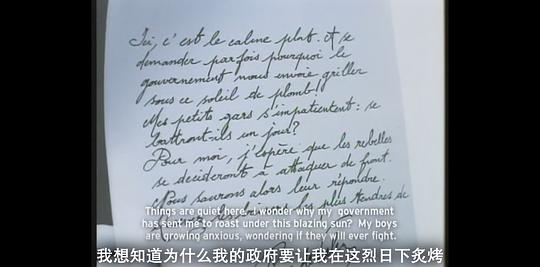 Ici, c'est le calme plat. A se
demander parfois pourquoi le
gouvernement nous envoie griller
sous ce soleil de plomb!
Mes petits gars s'impatientent: se
battront-ils un jour?
Pour moi, j'espère que les rebelles
se décideront à attaquer de front.
Nous saurons alors leur répondre.
les plus tendres de
Things are quiet here. I wonder why my government
has sent me to roast under this blazing sun? My boys
are growing anxious, wondering if they will ever fight.
我想知道为什么我的政府要让我在这烈日下炙烤